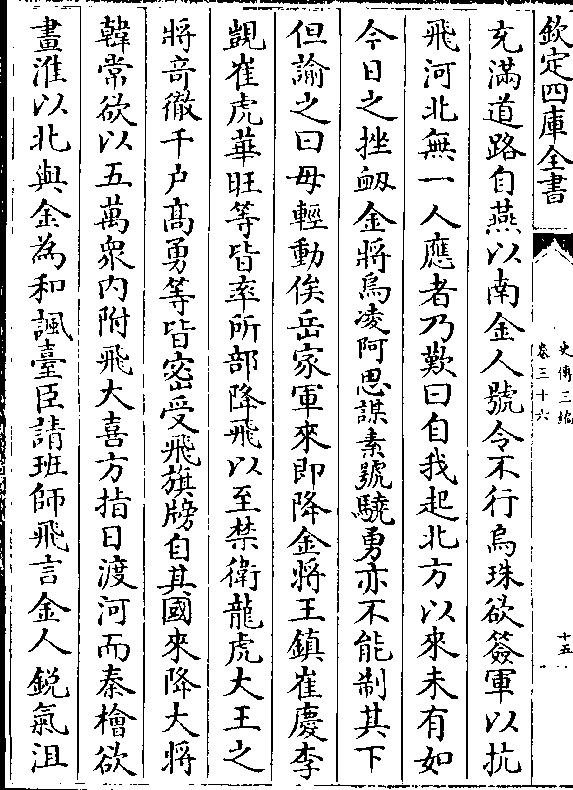 欽定四庫全書
史傳三編
卷三十六
十五
充滿道路自燕以南金人號令不行烏珠欲簽軍以抗
飛河北無一人應者乃歎曰自我起北方以來未有如
今日之挫衂金將烏凌阿思謀素號驍勇亦不能制其下
但諭之曰毋輕動俟岳家軍來即降金將王鎮崔慶李
覬崔虎華旺等皆率所部降飛以至禁衛龍虎大王之
將竒徹千户髙勇等皆宻受飛旗牓自其國來降大將
韓常欲以五萬衆内附飛大喜方指日渡河而秦檜欲
畫淮以北與金為和諷臺臣請班師飛言金人鋭氣沮